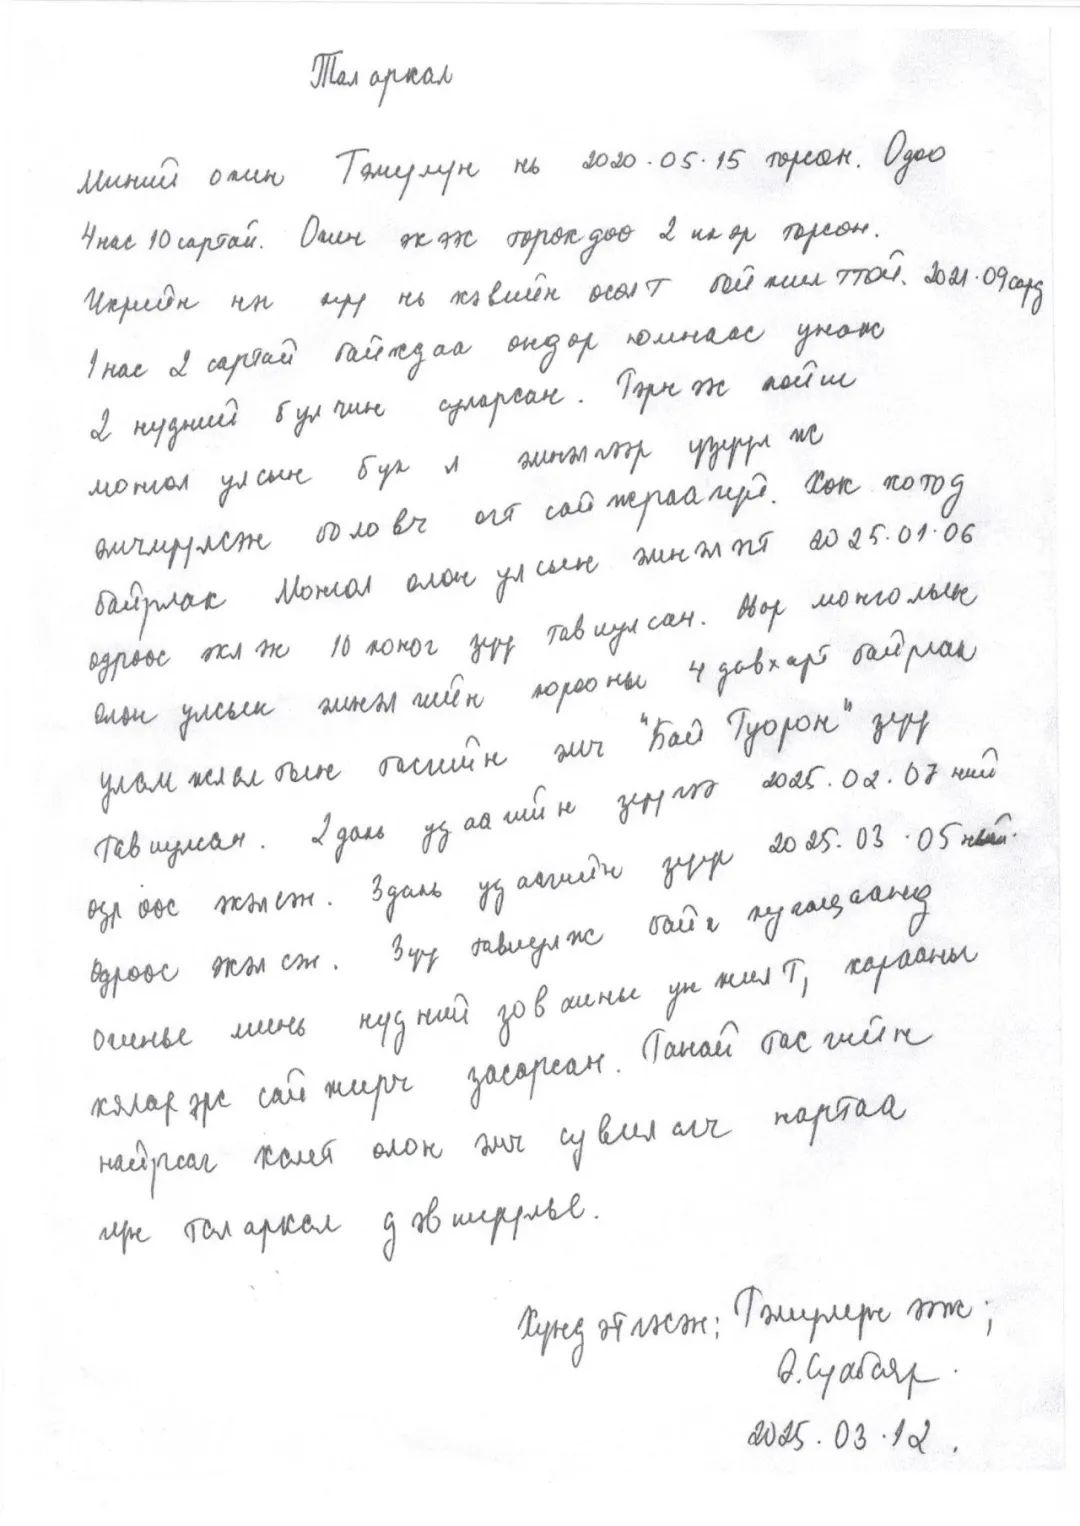 Талархал
Миний охин Тэмүүлүн нь 2020.05.15 төрсөн. Одоо
4 нас 10 сартай. Охин маань төрөхдөө 2 ихэр төрсөн.
Ихрийн нэг нь хэвийн өсөлт бойжилттой. 2021.09 сард
1 нас 2 сартай байхдаа өндөр юмнаас унаж
2 нүдний булчин суларсан. Түүнээс хойш
монгол улсын бүх л эмнэлгээр үзүүлж
эмчлүүлсэн боловч огт сайжраагүй. Хөх хотод
байрлах Монгол олон улсын эмнэлэгт 2025.01.06
өдрөөс эхлэж 10 хоног зүү тавиулсан. Өвөр монголын
олон улсын эмнэлгийн хорооны 4 давхарт байрлах
уламжлалтын тасгийн эмч "Бай Туорон" зүү
тавиулсан. 2 дахь удаагийн зүүгээ 2025.02.07 ний
өдрөөс эхэлсэн. 3 дахь удаагийн зүүг 2025.03.05 ний
өдрөөс эхэлсэн. Зүү тавиулж байх хугацаанд
охины минь нүдний зовхины унжилт, харааны
хялар эрс сайжирч засарсан. Танай тасгийн
найрсаг халуун олон эмч сувилагч нартаа
гүн талархал дэвшүүлье.
Хүндэтгэсэн: Тэмүүлүн ээж;
Э. Суабаяр.
2025.03.12.